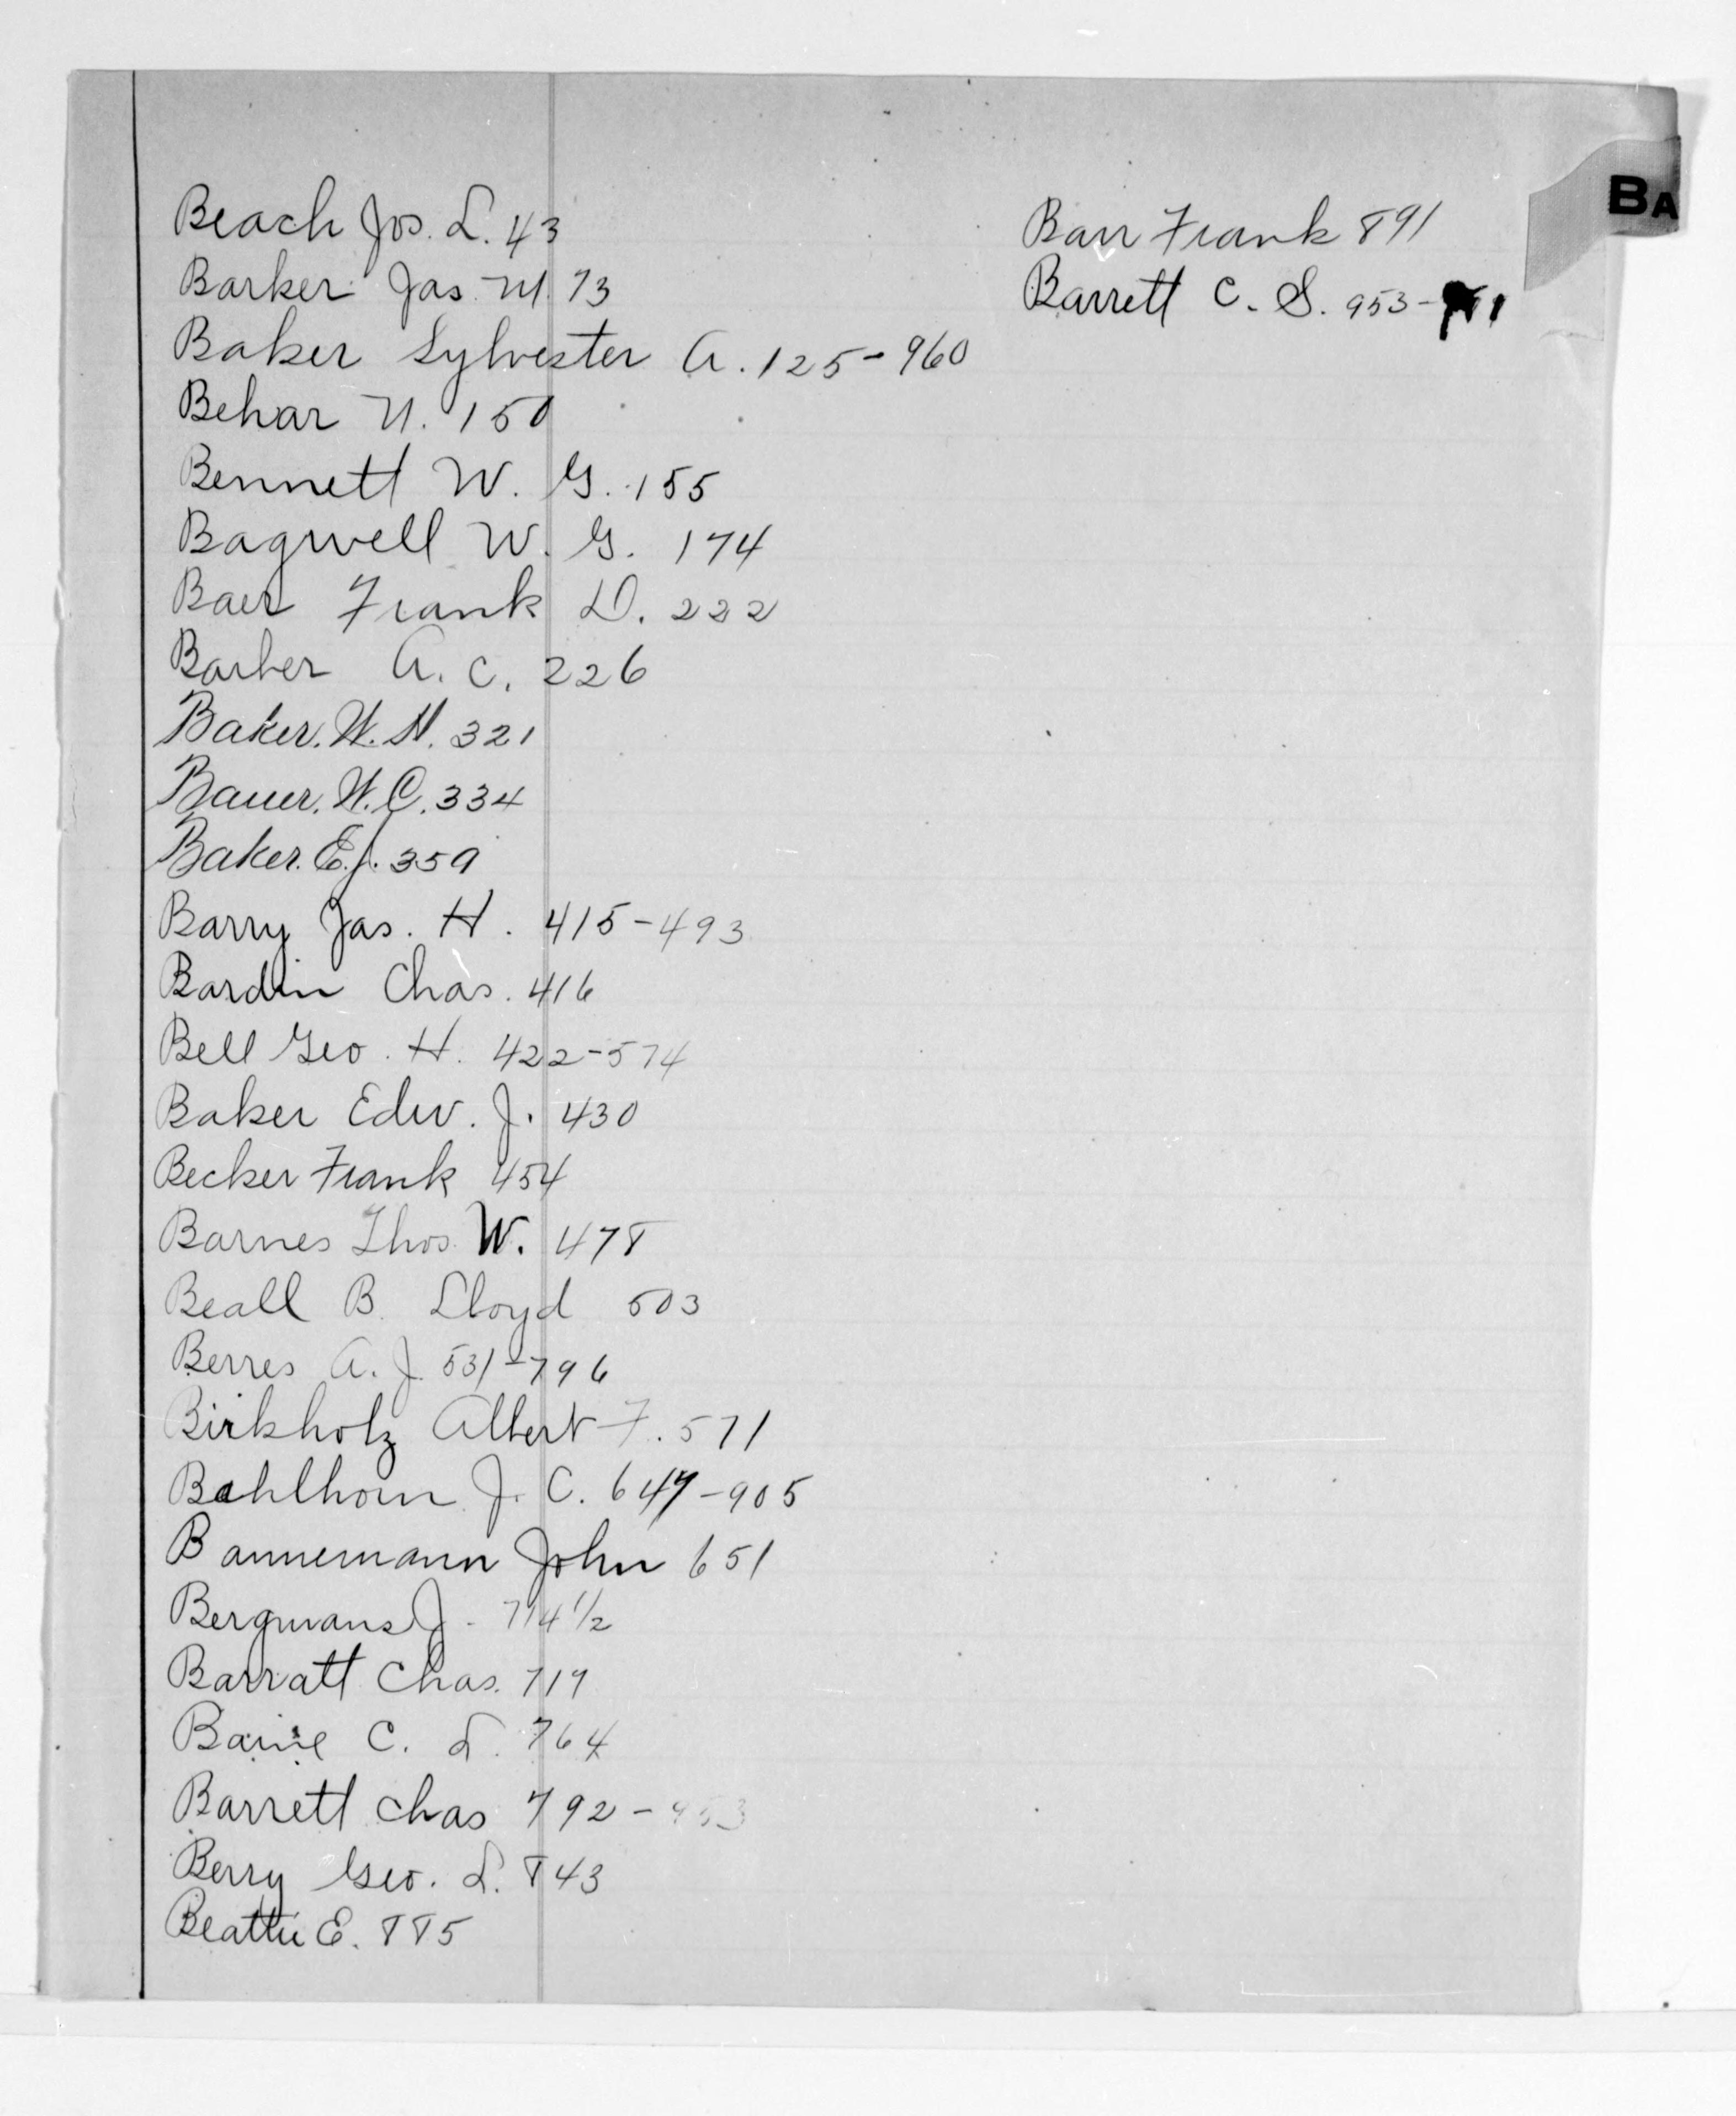 BA
Beach Jos. L. 43
Barker Jas. M. 73
Baker Sylvester A. 125-960
Behar N. 150
Bennett W. G. 155
Bagwell W. G. 174
Baer Frank D. 222
Barber A. C. 226
Baker. W. H. 321
Bauer. W. C. 334
Baker. E. J. 359
Barry Jas. H. 415-493
Bardin Chas. 416
Bell Geo. H. 422-574
Baker Edw. J. 430
Becker Frank 454
Barnes Thos. W. 478
Beall B. Lloyd 503
Berres A. J. 531-796
Birkholz Albert F. 571
Bahlhorn J. C. 647-905
Bannemann John 651
Bergmans J. 714 1/2
Barratt Chas. 717
Baine C. L. 764
Barrett Chas 792-953
Berry Geo. L. 843
Beattie E. 885
Barr Frank 891
Barrett C. S. 953-